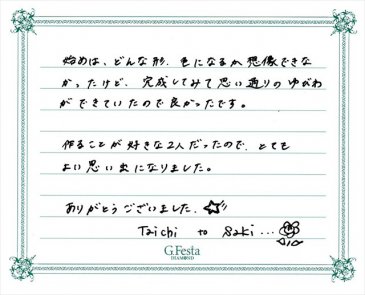 始めは、どんな形、色になるか想像できな
かったけど、完成してみて思い通りのゆびわ
ができていたので良かったです。
作ることが好きな2人だったので、とても
よい思い出になりました。
ありがとうございました。
Taichi to Saki...
G.Festa
DIAMOND